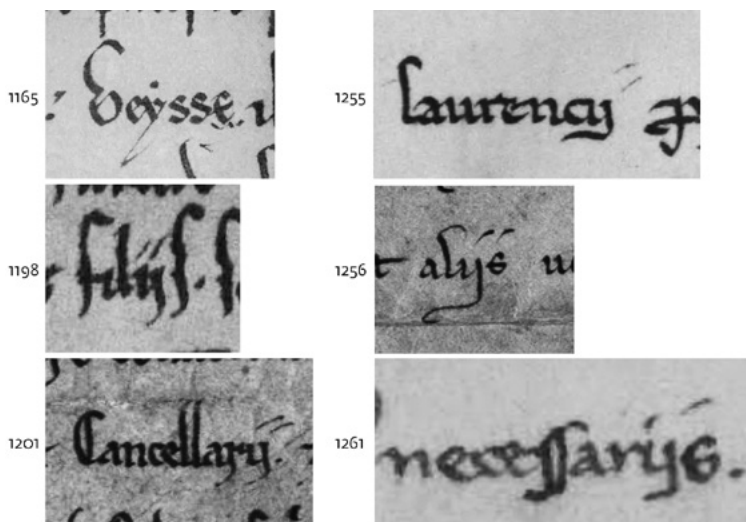 1165 deÿsse
1198 filijs.
1201 Cancellarij
1255 laurencij
1256 alijs
1261 necessarijs.